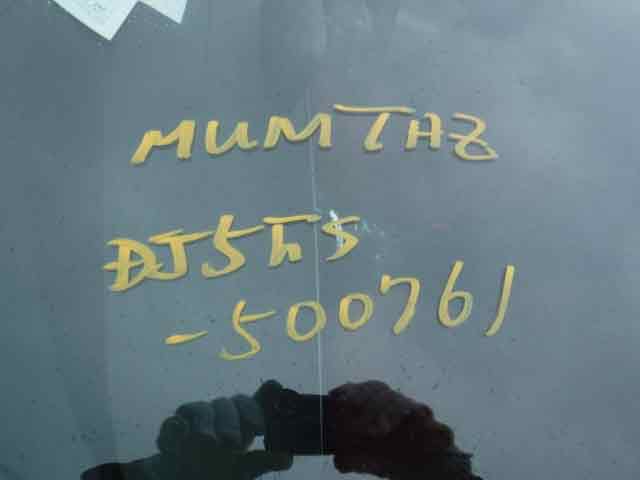 MUMTAZ
DJ5hS
-500761